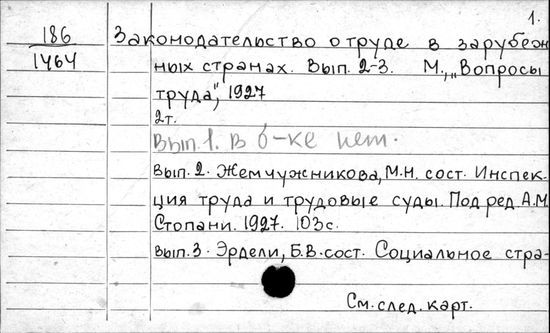 1.
186
1464
Законодательство о труде в зарубеж
ных странах. Вып. 2-3. М., „Вопросы
труда", 1927
2т.
Вып. 1. в б-ке нет.
Вып. 2. Жемчужникова, М.Н. сост. Инспек-
ция труда и трудовые суды. Под ред. А.М.
Стопани. 1927. 103с.
Вып. 3. Эрдели, Б.В. сост. Социальное стра-
См. след. карт.